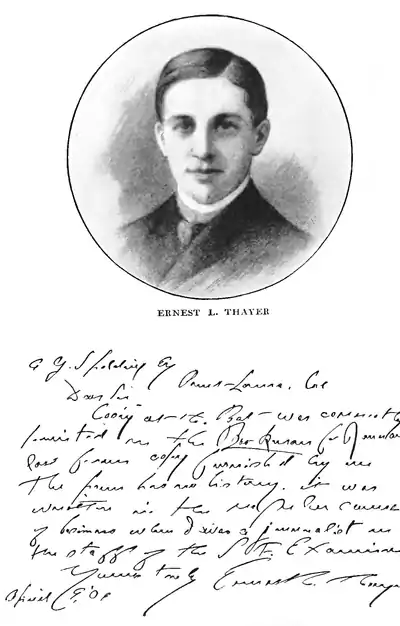 ERNEST L. THAYER
A. G. Spalding Esq
Point Loma, Cal
Dear Sir
"Casey at the Bat" was correctly
printed in the Bookman for January
from copy furnished by me
The poem has no history. It was
written in the regular course
of business when I was a journalist on
the staff of the S.F. Examiner
Yours truly Ernest L. Thayer
April